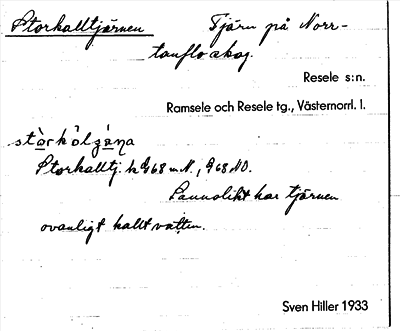 Storkalltjärnen Tjärn på Norr-
tanflo skog.
Resele s:n.
Ramsele och Resele tg., Västernorrl. l.
Storkalltj.
Sannolikt har tjärnen
ovanligt kallt vatten.
Sven Hiller 1933